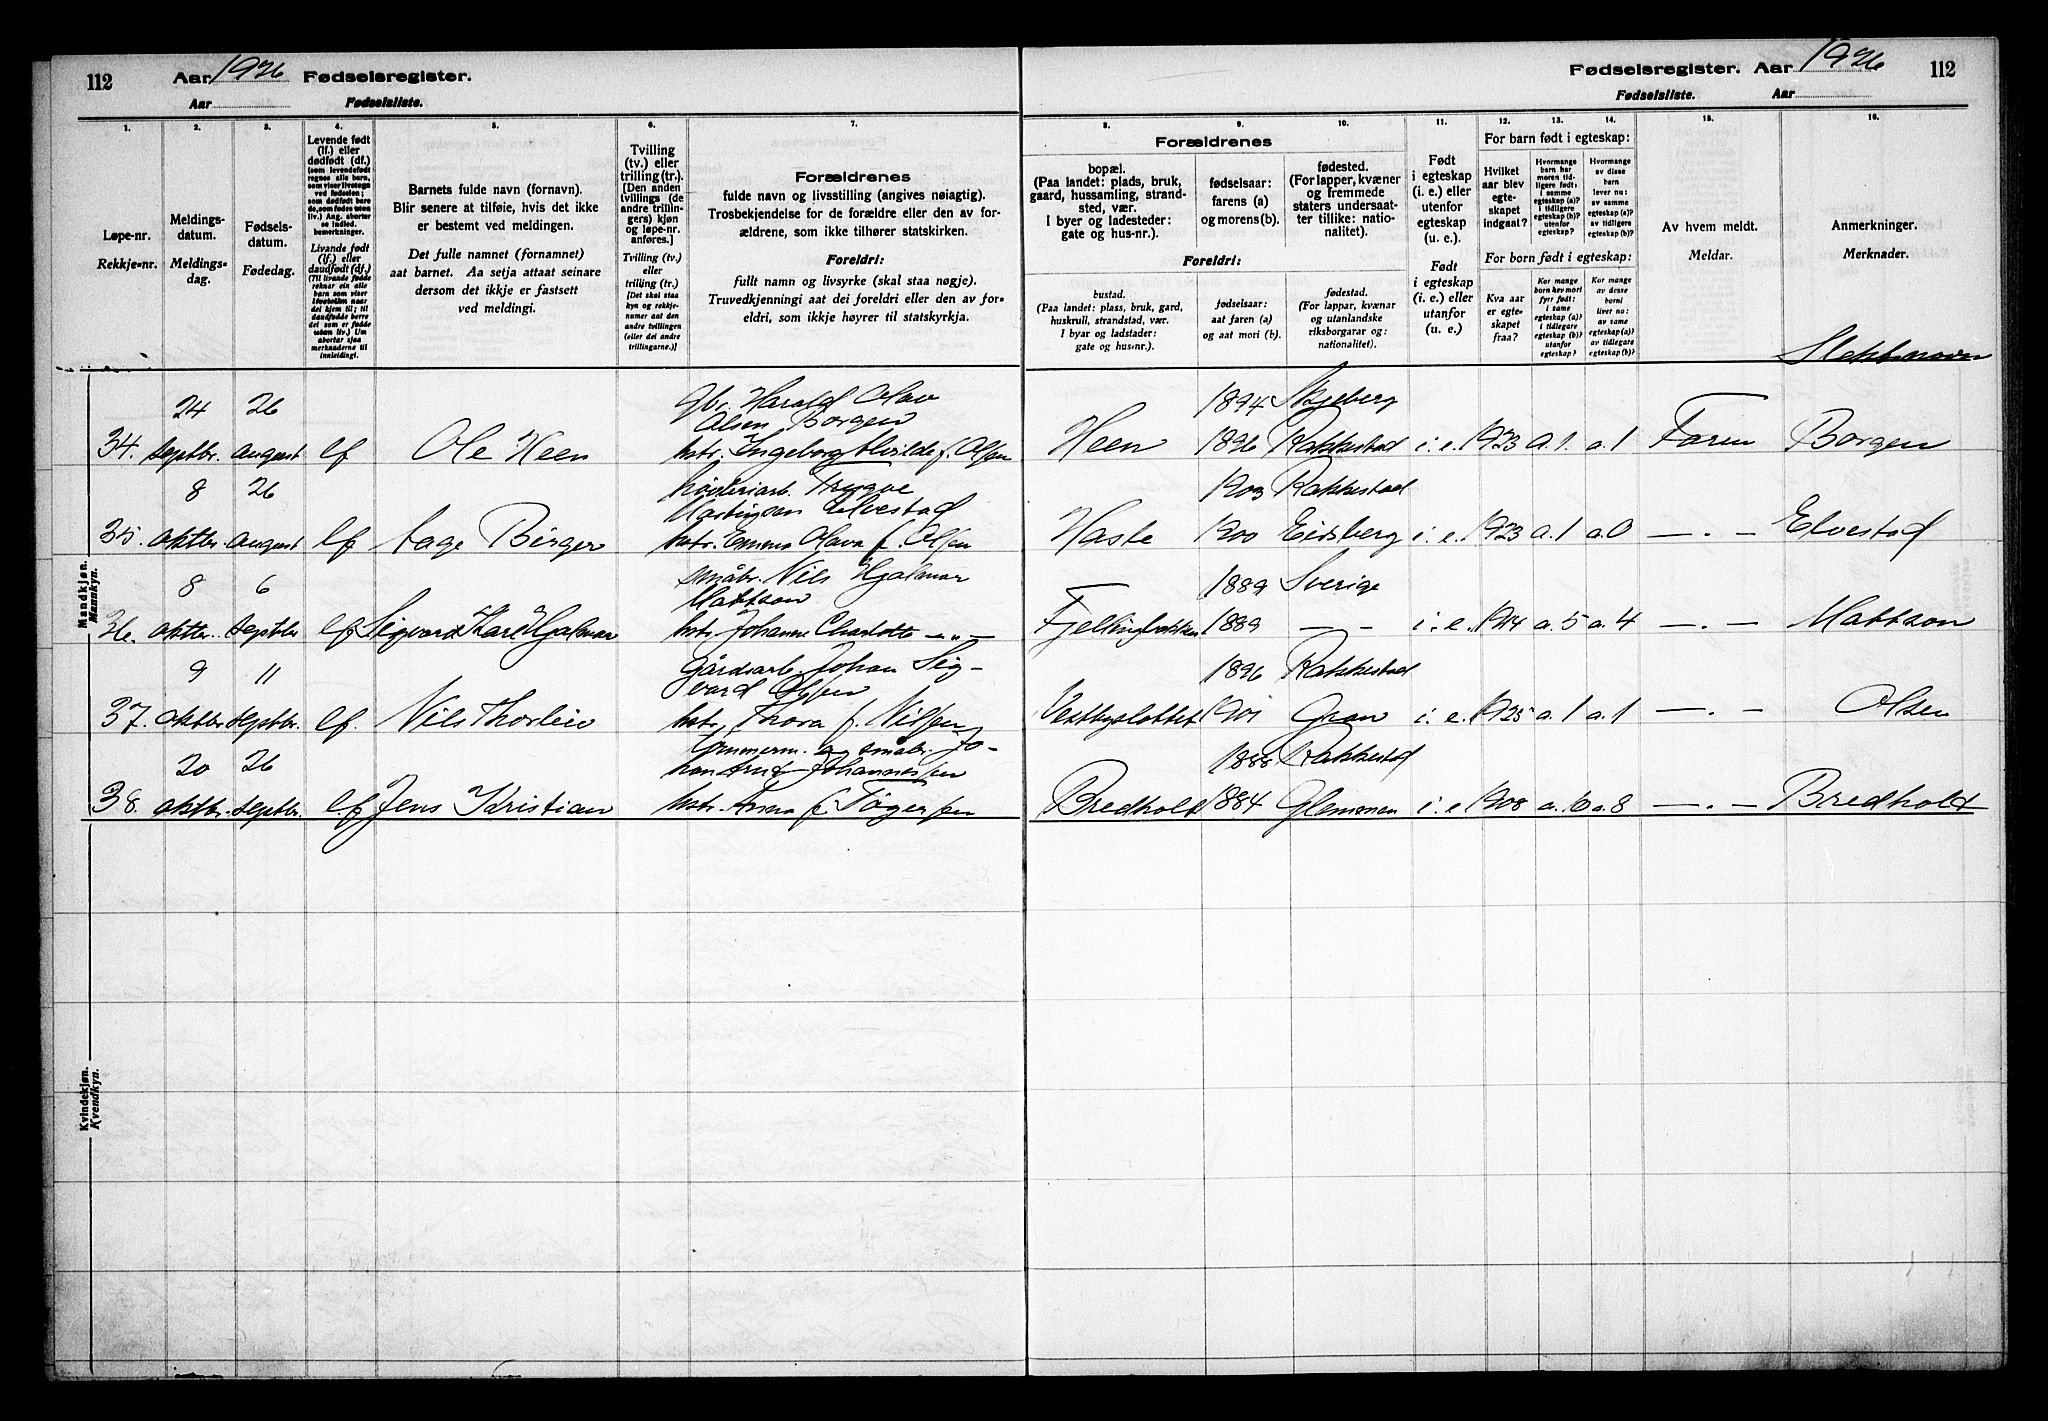 112 Aar 1926 Fødselsregister.
Aar Fødselsliste.
Fødselsregister. Aar 1926 112
Fødselsliste. Aar
1. 2. 3. 4. 5. 6. 7. 8. 9. 10. 11. 12. 13. 14. 15. 16.
Løpe-nr.
Rekkje-nr.
Meldings-
datum.
Meldings-
dag.
Fødsels-
datum.
Fødedag.
Levende født
(lf.) eller
dødfødt (df.)
Barnets fulde navn (fornavn).
Blir senere at tilføie, hvis det ikke
er bestemt ved meldingen.
Det fulle namnet (fornamnet)
aat barnet. Aa setja attaat seinare
dersom det ikkje er fastsett
ved meldingi.
Tvilling
(tv.) eller
trilling (tr.).
[Den anden
tvillings (de
andre trillin-
gers) kjøn
og løpe-nr.
anføres.]
Tvilling (tv.)
eller
trilling (tr.)
[Det skal staa
kyn og rekkje-
numer aat den
andre tvillingen
(eller dei andre
trillingarne.)]
Forældrenes
fulde navn og livsstilling (angives nøiagtig).
Trosbekjendelse for de forældre eller den av for-
ældrene, som ikke tilhører statskirken.
Foreldri:
fullt namn og livsyrke (skal staa nøgje).
Truvedkjenningi aat dei foreldri eller den av for-
eldri, som ikkje høyrer til statskyrkja.
Forældrenes
bopæl.
(Paa landet: plads, bruk,
gaard, hussamling, strand-
sted, vær.
I byer og ladesteder:
gate og hus-nr.).
fødselsaar:
farens (a)
og morens (b).
fødested.
(For lapper, kvæner
og fremmede
staters undersaat-
ter tillike: natio-
nalitet).
Foreldri:
bustad.
(Paa landet: plass, bruk, gard,
huskrull, strandstad, vær.
I byar og ladstader:
gate og hus-nr.).
fødselsaar:
aat faren (a)
og aat mori (b).
fødestad.
(For lappar, kvænar
og utanlandske
riksborgarar og:
nationalitet).
Født
i egteskap
(i. e.) eller
utenfor
egteskap
(u. e.).
Født
i egteskap
(i. e.) eller
utanfor
(u. e.).
For barn født i egteskap:
Hvilket
aar blev
egte-
skapet
indgaat?
Hvormange
barn har
moren tid-
ligere født;
i samme
egteskap (a)?
i tidligere
egteskap (b)?
utenfor
egteskap?
Hvormange
av disse
barn
lever nu:
av samme
egteskap (a)?
av tidligere
egteskap (b)?
For born født i egteskap:
Kva aar
er egte-
skapet
fraa?
Kor mange
born hev mori
fyrr født:
i same
egteskap (a)?
i tidlegare
egteskap (b)?
utanfor
egteskap?
Kor mange
av desse
borni
liver no:
av same
egteskap (a)?
av tidlegare
egteskap (b)?
Av hvem meldt.
Meldar.
Anmerkninger.
Merknader.
Slektsnavn
Mandkjøn.
Mannkyn.
24 26 Gbr. Harald Olav 1894 Skjeberg
Olsen Borgen
34. septbr. august lf Ole Heen hstr. Ingeborg Alvilde f. Olsen Heen 1896 Rakkestad i. e. 1923 a. 1. a. 1 Faren Borgen
8 26 Trygve 1903 Rakkestad
Martinsen Elvestad
35. oktbr. august lf Aage Birger hstr. Emma Olava f. Olsen Haste 1900 Eidsberg i. e. 1923 a. 1 a. 0 — . — Elvestad
8 6 småbr. Nils Hjalmar 1889 Sverige
Mattson
36. oktbr. septbr lf Sigvard Karl Hjalmar hstr. Johanne Charlotte — „ — 1889 — — i. e. 1914 a. 5 a. 4 — . — Mattson
9 11 Gårdsarb. Johan Sig- 1896 Rakkestad
vard Olsen
37. oktbr. septbr. lf. Nils Thorleiv hstr. Thora f. Nilssen Vestbyslottet 1901 Gran i. e. 1925 a. 1 a. 1 — . — Olsen
20 26 Tømmerm. og småbr. Jo- 1888 Rakkestad
han Arnt Johannessen
38. oktbr. septbr. lf Jens Kristian hstr. Anna f. Tøgersen Bredholt 1884 Glemmen i. e. 1908 a. 10 a. 8 — . — Bredholt
Kvindekjøn.
Kvendkyn.